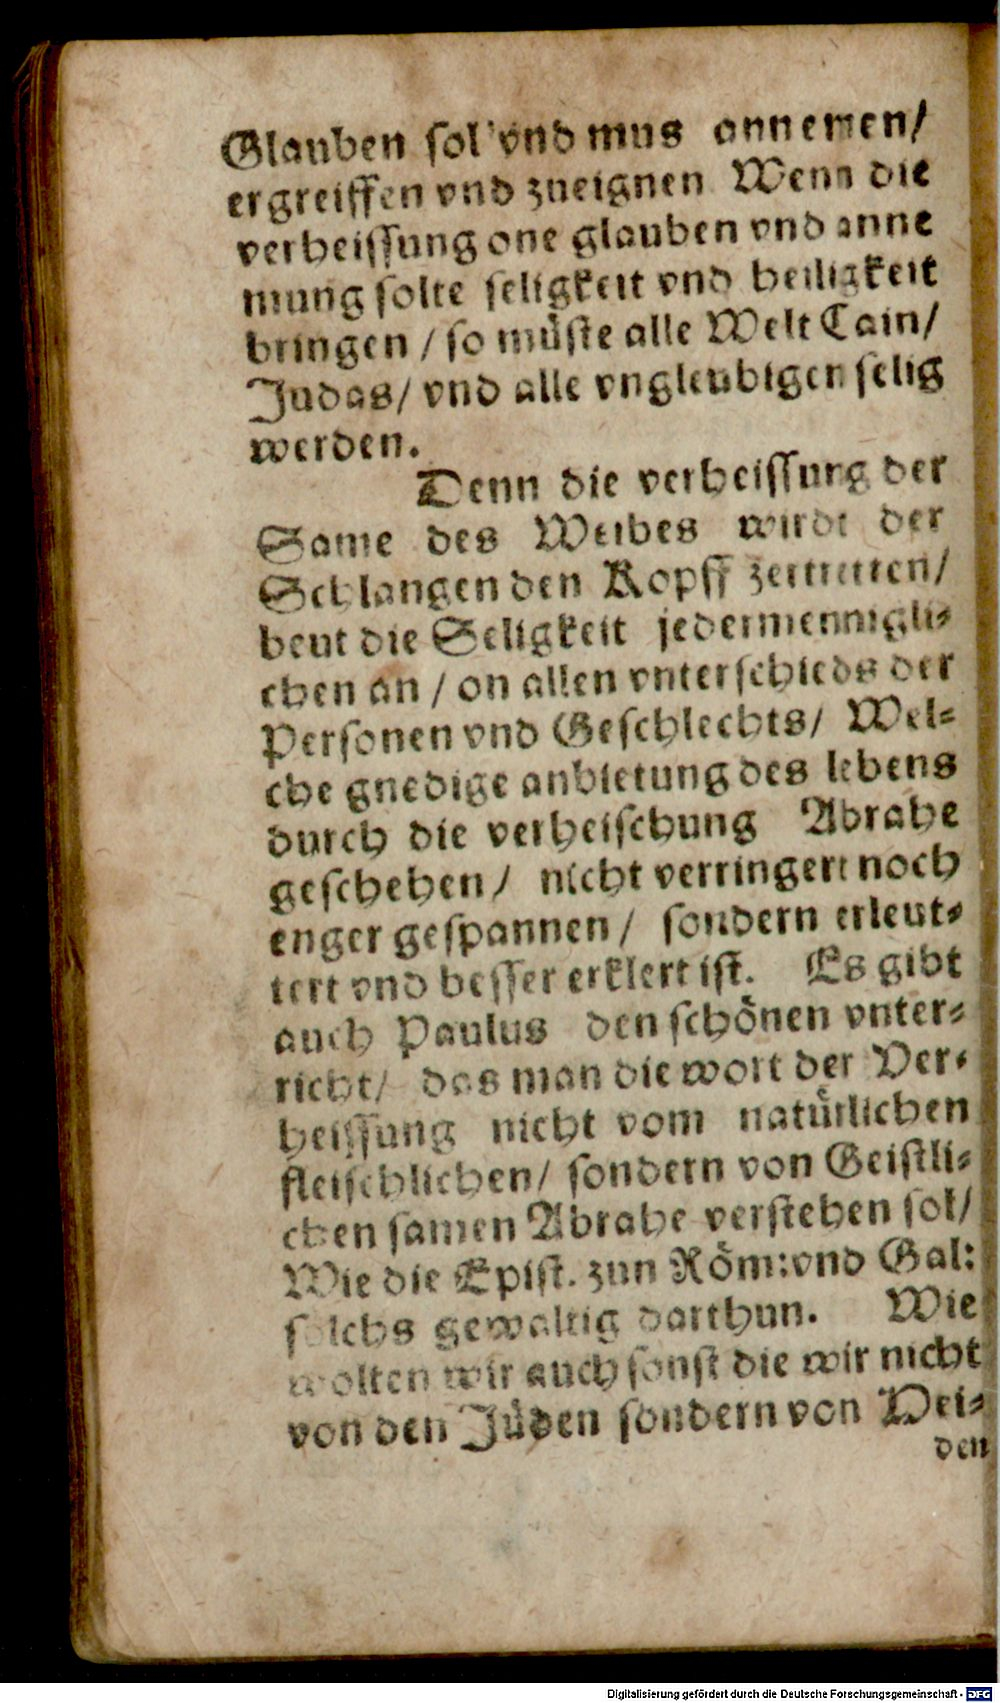 Glauben sol vnd mus annemen/
ergreiffen vnd zueignen Wenn die
verheissung one glauben vnd anne
mung solte seligkeit vnd heiligkeit
bringen / so müste alle Welt Cain/
Judas/ vnd alle vngleubigen selig
werden.
Denn die verheissung der
Same des Weibes wirdt der
Schlangen den Kopff zertretten/
beut die Seligkeit jedermennigli⸗
chen an / on allen vnterschieds der
Personen vnd Geschlechts/ Wel⸗
che gnedige anbietung des lebens
durch die verheischung Abrahe
geschehen / nicht verringert noch
enger gespannen / sondern erleut⸗
tert vnd besser erklert ist. Es gibt
auch Paulus den schönen vnter⸗
richt/ das man die wort der Ver⸗
heissung nicht vom natürlichen
fleischlichen/ sondern von Geistli⸗
chen samen Abrahe verstehen sol/
Wie die Epist. zun Röm: vnd Gal:
solchs gewaltig darthun. Wie
wolten wir auch sonst die wir nicht
von den Jüden sondern von Hei⸗
den
Digitalisierung gefördert durch die Deutsche Forschungsgemeinschaft - DFG